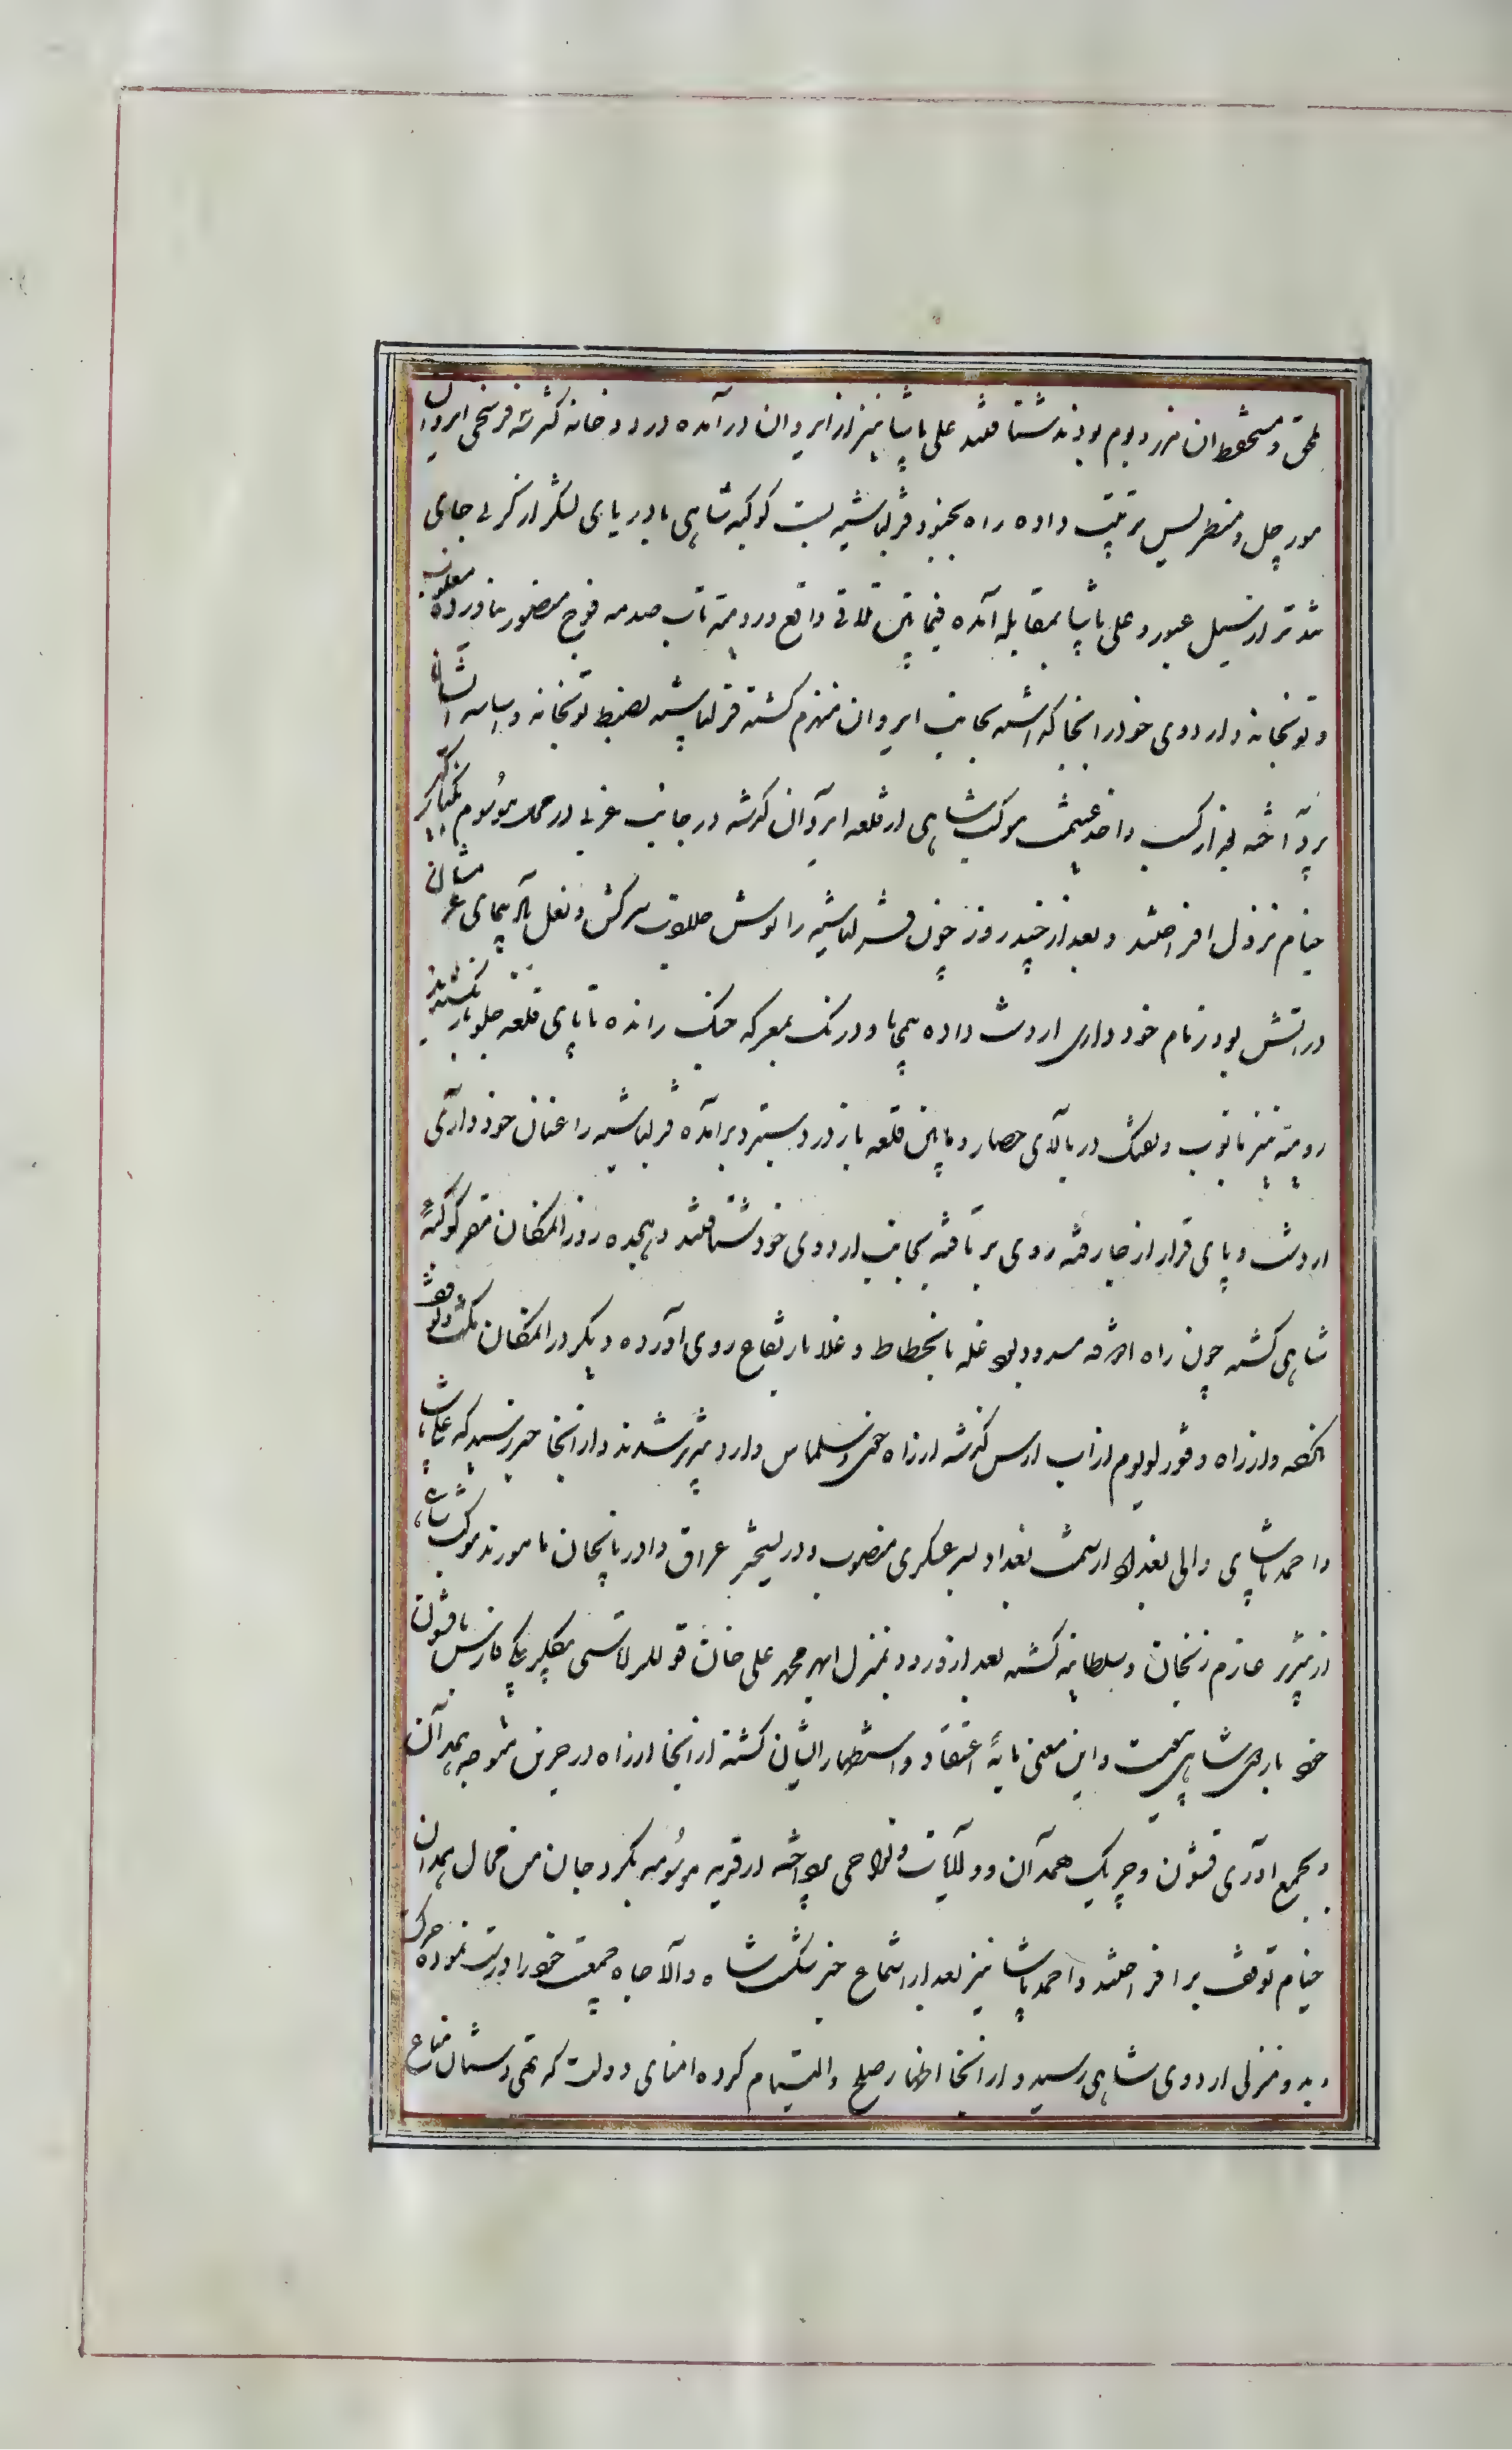 ملحق و مستحفظان مرز و بوم بودند شتافتند علی پاشا نیز از ایروان درآمده در رودخانه کشته فرسخی ایروان
مورچل و منطریس ترتیب داده راه بجنود قزلباشیه بست کوکبه شاهی با دریای لشکر از کربی جای
تندتر از سیل عبور و علی پاشا بمقابله آمده فیمابین تلاقی واقع و رومیه تاب صدمه فوج منصور نیاورده مغلوب
و توپخانه و اردوی خود را انجا گذاشته بجانب ایروان منهزم گشته قزلباشیه بضبط توپخانه و اسباب ایشان
پرداخته بعد از کسب و اخذ غنیمت موکب شاهی از قلعه ایروان گذشته در جانب غربی در محل موسوم
خیام نزول افراختند و بعد از چند روز چون قزلباشیه را توسن جلادت سرکش و نعل بادپیمای عزمشان
در آتش بود زمام خودداری از دست داده بیمحابا و درنگ بمعرکه جنگ رانده تا پای قلعه جلو باز نکشیدند
رومیه نیز با توپ و تفنگ در بالای حصار و پایین قلعه باز در دستبرد برآمده قزلباشیه را عنان خودداری
از دست و پای قرار از جا رفته روی برتافته بجانب اردوی خود شتافتند و هیجده روز المکان مقر کوکبه
شاهی گشته چون راه آذوقه مسدود بود غله بانحطاط و غلا بارتفاع روی آورده دیگر در المکان مکث و توقف
نکرده و از راه از آب ارس گذشته از راه خوی و سلماس وارد تبریز شدند و از انجا خبر رسید که علی پاشا
و احمد پاشای والی بغداد از سمت بغداد بسر عسکری منصوب و در تسخیر عراق و آذربایجان مامورند موکب شاهی
از تبریز عازم زنجان و سلطانیه گشته بعد از ورود بمنزل ابهر محمد علی خان قوللر آقاسی بیگلربیگی فارس با قشون
خود باردوی شاهی پیوست و این معنی مایهٔ اعتضاد و استظهار ایشان گشته از انجا از راه درجزین متوجه همدان
و بجمع آوری قشون و چریک همدان و ولایات و نواحی پرداخته در قریه موسومه بکردجان من محال همدان
خیام توقف برافراختند و احمد پاشا نیز بعد از استماع خبر شکست شاه والاجاه جمعیت خود را درست نموده حرکت
و بدو منزلی اردوی شاهی رسید و از انجا اظهار صلح و التیام کرده امنای دولت که تهی دستان متاع